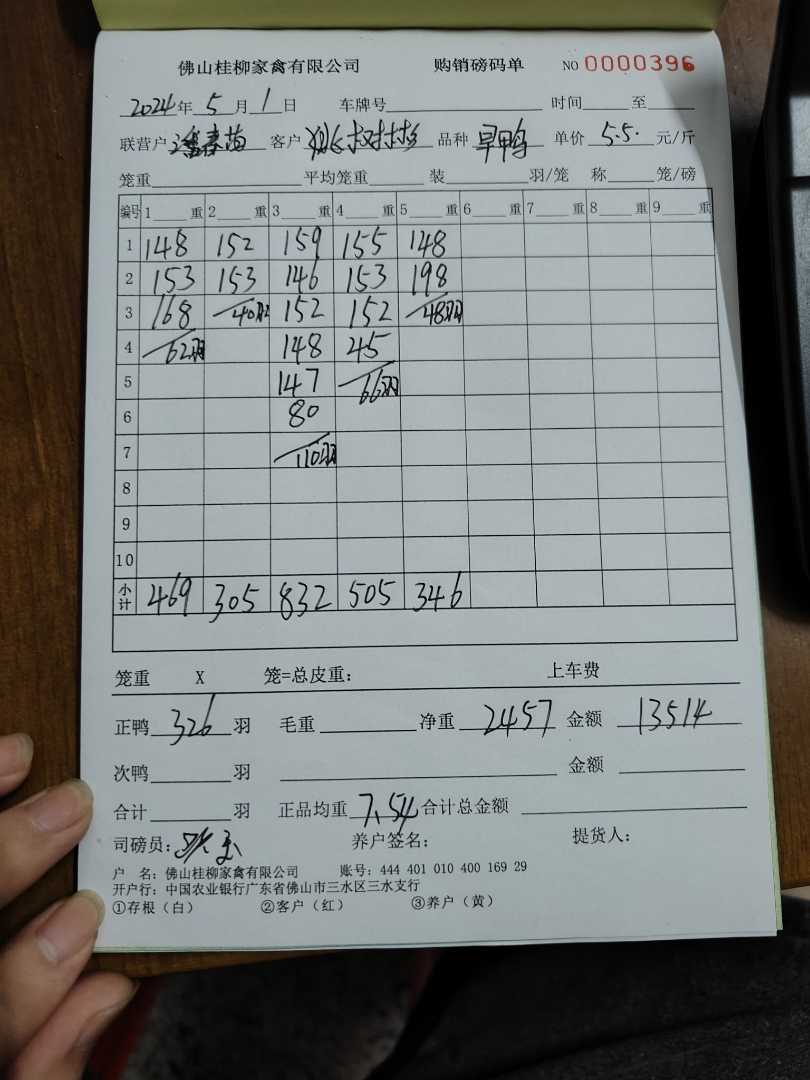 佛山桂柳家禽有限公司 购销磅码单 NO 0000396
2024年 5月 1日 车牌号 时间 至
联营户 潘春苗 客户 品种 旱鸭 单价 5.5. 元/斤
笼重 平均笼重 装 羽/笼 称 笼/磅
编号 1 重 2 重 3 重 4 重 5 重 6 重 7 重 8 重 9 重
1 148 152 159 155 148
2 153 153 146 153 198
3 168 40羽 152 152 48羽
4 62羽 148 45
5 147 66羽
6 80
7 110羽
8
9
10
小计 469 305 832 505 346
笼重 X 笼=总皮重: 上车费
正鸭 326 羽 毛重 净重 2457 金额 13514
次鸭 羽 金额
合计 羽 正品均重 7.54 合计总金额
司磅员: 养户签名: 提货人:
户 名: 佛山桂柳家禽有限公司 账号: 444 401 010 400 169 29
开户行: 中国农业银行广东省佛山市三水区三水支行
①存根(白) ②客户(红) ③养户(黄)